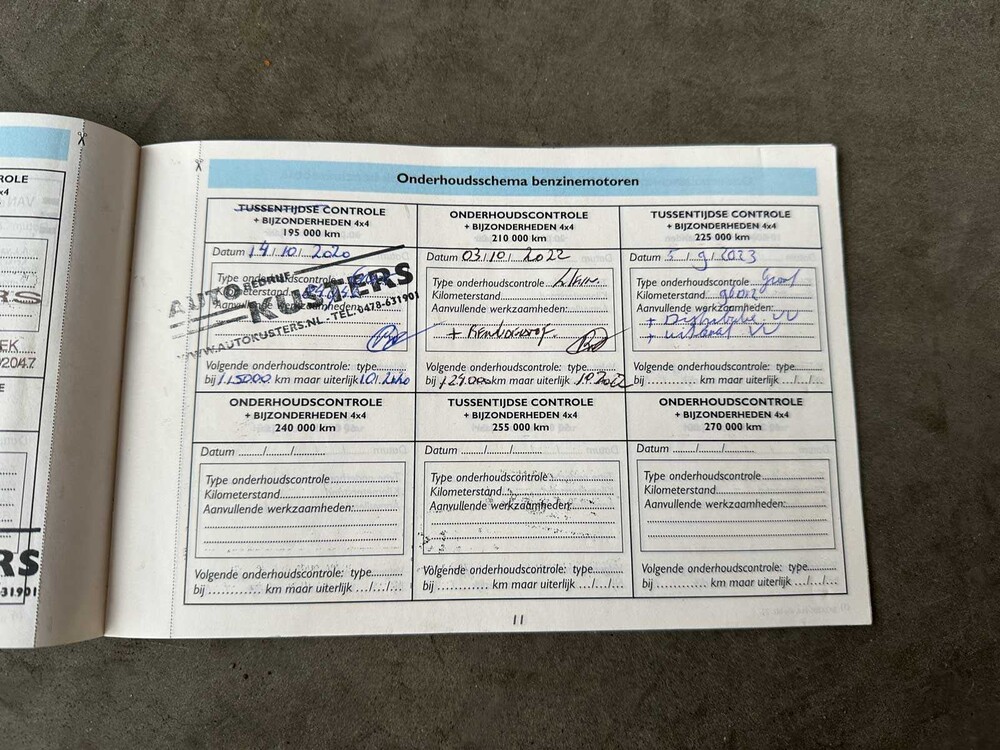 ROLE
x4
EK
2047.
E
RS
31901
Onderhoudsschema benzinemotoren
TUSSENTIJDSE CONTROLE
+ BIJZONDERHEDEN 4x4
195 000 km
Datum 14/10/2020
Type onderhoudscontrole
Kilometerstand
Aanvullende werkzaamheden:
AUTOBEDRIJF
KUSTERS
WWW.AUTOKUSTERS.NL - TEL. 0478-631901
Volgende onderhoudscontrole: type
bij 115000 km maar uiterlijk
ONDERHOUDSCONTROLE
+ BIJZONDERHEDEN 4x4
210 000 km
Datum 03/10/2022
Type onderhoudscontrole Klein
Kilometerstand
Aanvullende werkzaamheden:
Volgende onderhoudscontrole: type
bij km maar uiterlijk
TUSSENTIJDSE CONTROLE
+ BIJZONDERHEDEN 4x4
225 000 km
Datum 5/9/2023
Type onderhoudscontrole Groot
Kilometerstand
Aanvullende werkzaamheden:
+ Distributie VV
Volgende onderhoudscontrole: type
bij ............ km maar uiterlijk .../.../...
ONDERHOUDSCONTROLE
+ BIJZONDERHEDEN 4x4
240 000 km
Datum ......./......./..........
Type onderhoudscontrole
Kilometerstand
Aanvullende werkzaamheden:
Volgende onderhoudscontrole: type
bij ............ km maar uiterlijk .../.../...
TUSSENTIJDSE CONTROLE
+ BIJZONDERHEDEN 4x4
255 000 km
Datum ......./......./..........
Type onderhoudscontrole
Kilometerstand
Aanvullende werkzaamheden:
Volgende onderhoudscontrole: type
bij ............ km maar uiterlijk .../.../...
ONDERHOUDSCONTROLE
+ BIJZONDERHEDEN 4x4
270 000 km
Datum ......./......./..........
Type onderhoudscontrole
Kilometerstand
Aanvullende werkzaamheden:
Volgende onderhoudscontrole: type
bij ............ km maar uiterlijk .../.../...
11